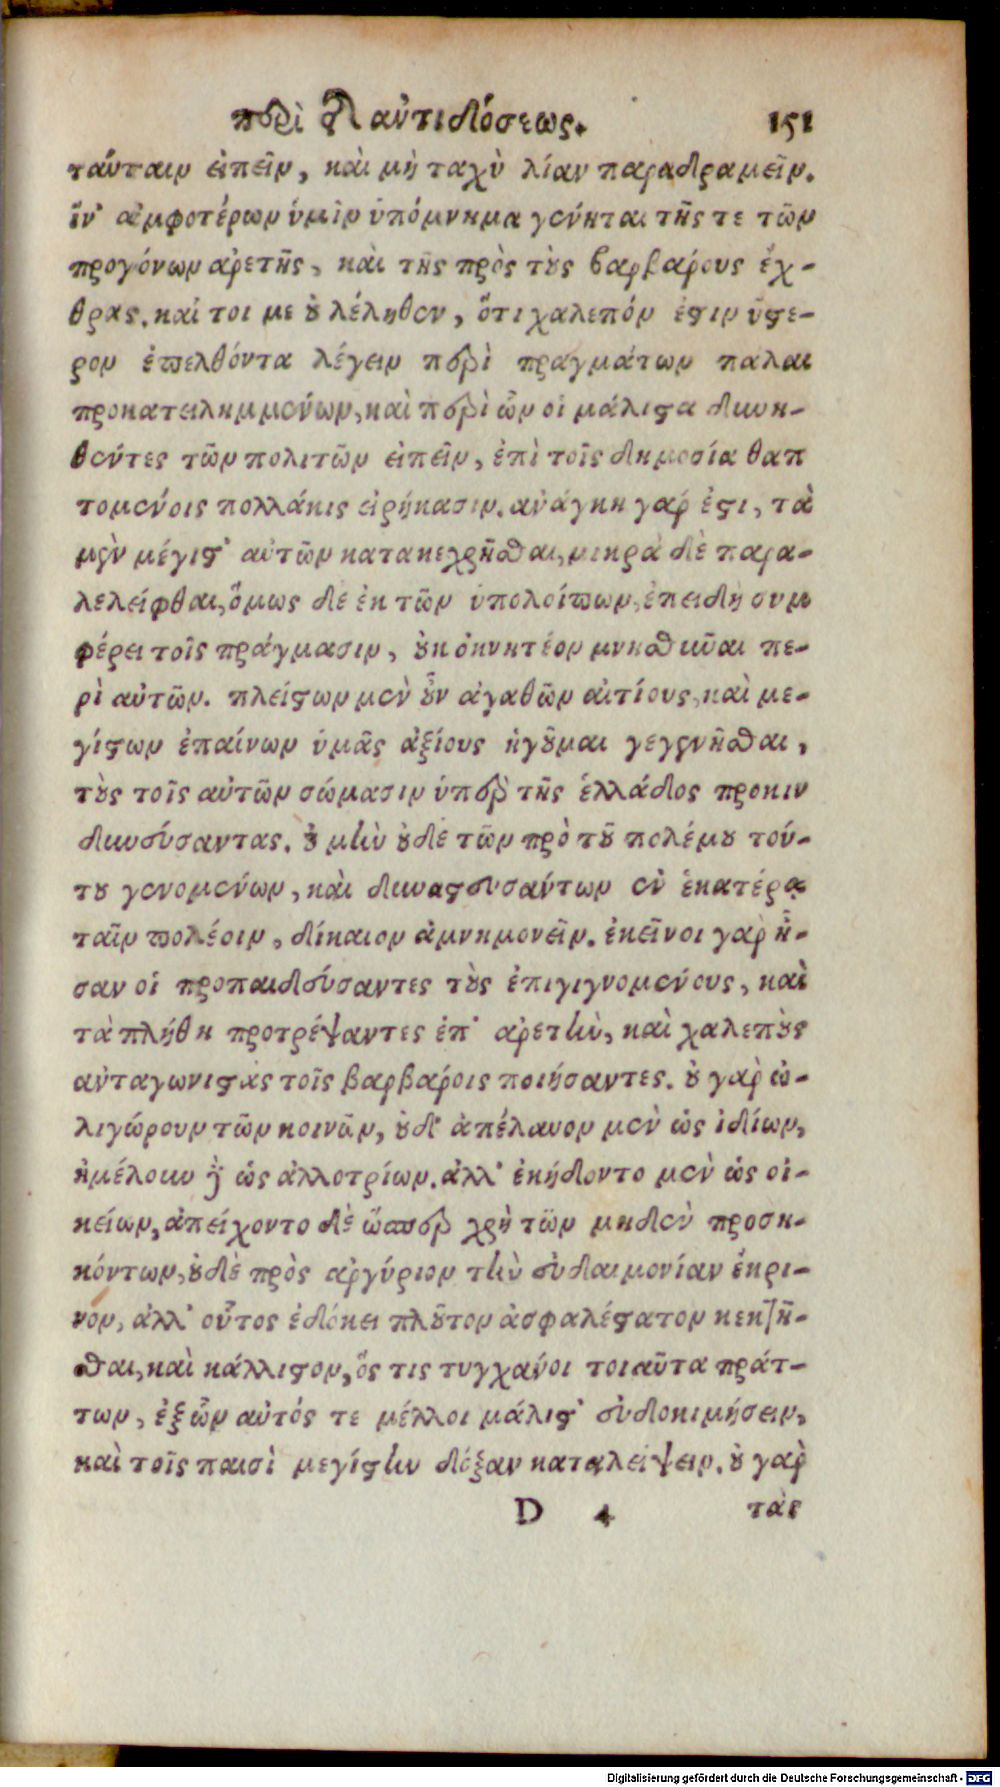 περὶ τῆς ἀντιδόσεως. 151
ταύταιν εἰπεῖν, καὶ μὴ ταχὺ λίαν παραδραμεῖν.
ἵν᾽ ἀμφοτέρων ὑμῖν ὑπόμνημα γένηται τῆς τε τῶν
προγόνων ἀρετῆς, καὶ τῆς πρὸς τοὺς βαρβάρους ἔχ-
θρας. καί τοι με οὐ λέληθεν, ὅτι χαλεπόν ἐστιν ὕστε-
ρον ἐπελθόντα λέγειν περὶ πραγμάτων πάλαι
προκατειλημμένων, καὶ περὶ ὧν οἱ μάλιστα δυνη-
θέντες τῶν πολιτῶν εἰπεῖν, ἐπὶ τοῖς δημοσία θαπ
τομένοις πολλάκις εἰρήκασιν. ἀνάγκη γάρ ἐστι, τὰ
μὲν μέγιστ᾽ αὐτῶν κατακεχρῆσθαι, μικρὰ δὲ παρα-
λελεῖφθαι, ὅμως δὲ ἐκ τῶν ὑπολοίπων, ἐπειδὴ συμ
φέρει τοῖς πράγμασιν, οὐκ ὀκνητέον μνησθῆναι πε-
ρὶ αὐτῶν. πλείστων μὲν οὖν ἀγαθῶν αἰτίους, καὶ με-
γίστων ἐπαίνων ὑμᾶς ἀξίους ἡγοῦμαι γεγενῆσθαι,
τοὺς τοῖς αὐτῶν σώμασιν ὑπὲρ τῆς ἑλλάδος προκιν
δυνεύσαντας. οὐ μὴν οὐδὲ τῶν πρὸ τοῦ πολέμου τού-
του γενομένων, καὶ δυναστευσάντων ἐν ἑκατέρᾳ
ταῖν πολέοιν, δίκαιον ἀμνημονεῖν. ἐκεῖνοι γὰρ ἦ-
σαν οἱ προπαιδεύσαντες τοὺς ἐπιγιγνομένους, καὶ
τὰ πλήθη προτρέψαντες ἐπ᾽ ἀρετὴν, καὶ χαλεποὺς
ἀνταγωνιστὰς τοῖς βαρβάροις ποιήσαντες. οὐ γὰρ ὠ-
λιγώρουν τῶν κοινῶν, οὐδ᾽ ἀπέλαυον μὲν ὡς ἰδίων,
ἠμέλουν δὲ ὡς ἀλλοτρίων. ἀλλ᾽ ἐκήδοντο μὲν ὡς οἰ-
κείων, ἀπείχοντο δὲ ὥσπερ χρὴ τῶν μηδὲν προση-
κόντων, οὐδὲ πρὸς ἀργύριον τὴν εὐδαιμονίαν ἔκρι-
νον, ἀλλ᾽ οὗτος ἐδόκει πλοῦτον ἀσφαλέστατον κεκτῆ-
σθαι, καὶ κάλλιστον, ὅς τις τυγχάνοι τοιαῦτα πράτ-
των, ἐξ ὧν αὐτός τε μέλλοι μάλιστ᾽ εὐδοκιμήσειν,
καὶ τοῖς παισὶ μεγίστην δόξαν καταλείψειν. οὐ γὰρ
D 4 τὰς
Digitalisierung gefördert durch die Deutsche Forschungsgemeinschaft - DFG